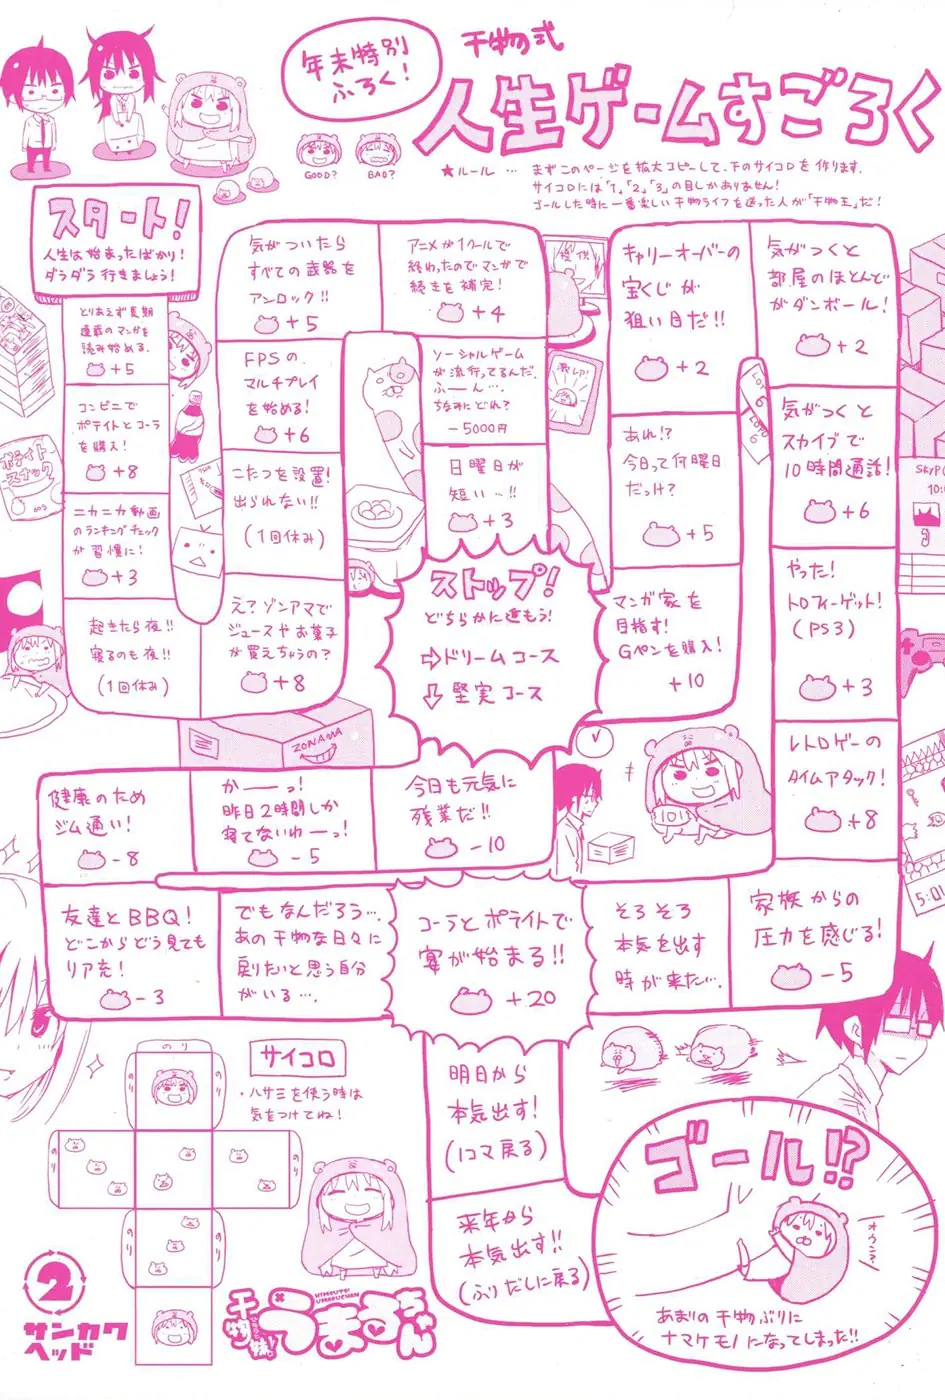 年末特別
ふろく!
干物式
人生ゲームすごろく
GOOD?
BAD?
★ルール … まずこのページを拡大コピーして、下のサイコロを作ります。
サイコロには「1」「2」「3」の目しかありません!
ゴールした時に一番楽しい干物ライフを送った人が「干物王」だ!
スタート!
人生は始まったばかり!
ダラダラ行きましょう!
とりあえず長期
連載のマンガを
読み始める.
+5
コンビニで
ポテイトとコーラ
を購入!
+8
ニカニカ動画
のランキングチェック
が習慣に!
+3
起きたら夜!!
寝るのも夜!!
(1回休み)
え?ゾンアマで
ジュースやお菓子
が買えちゃうの?
+8
こたつを設置!
出られない!!
(1回休み)
FPSの、
マルチプレイ
を始める!
+6
気がついたら
すべての武器を
アンロック!!
+5
アニメが1クールで
終わったのでマンガで
続きを補完!
+4
ソーシャルゲーム
が流行ってるんだ.
ふーん….
ちなみにどれ?
-5000円
日曜日が
短い…!!
+3
ストップ!
どちらかに進もう!
⇨ドリームコース
⇩堅実コース
マンガ家を
目指す!
Gペンを購入!
+10
あれ!?
今日って何曜日
だっけ?
+5
キャリーオーバーの
宝くじが
狙い目だ!!
+2
気がつくと
部屋のほとんど
がダンボール!
+2
気がつくと
スカイプで
10時間通話!
+6
やった!
トロフィーゲット!
(PS3)
+3
レトロゲーの
タイムアタック!
+8
家族からの
圧力を感じる!
-5
そろそろ
本気を出す
時が来た….
今日も元気に
残業だ!!
-10
かーーっ!
昨日2時間しか
寝てないわーっ!
-5
健康のため
ジム通い!
-8
友達とBBQ!
どこからどう見ても
リア充!
-3
でもなんだろう…、
あの干物な日々に
戻りたいと思う自分
がいる….
コーラとポテイトで
宴が始まる!!
+20
明日から
本気出す!
(1コマ戻る)
来年から
本気出す!!
(ふりだしに戻る)
ゴール!?
オウン?
あまりの干物ぶりに
ナマケモノになってしまった!!
ポテイト
スナック
60g
ZONAMA
LOTO
6
LOTO
6
SkyPC
5:01
サイコロ
・ハサミを使う時は
気をつけてね!
のり
のり
のり
のり
のり
2
サンカク
ヘッド
HIMOUTO!
UMARUCHAN
干物妹!
うまるちゃん